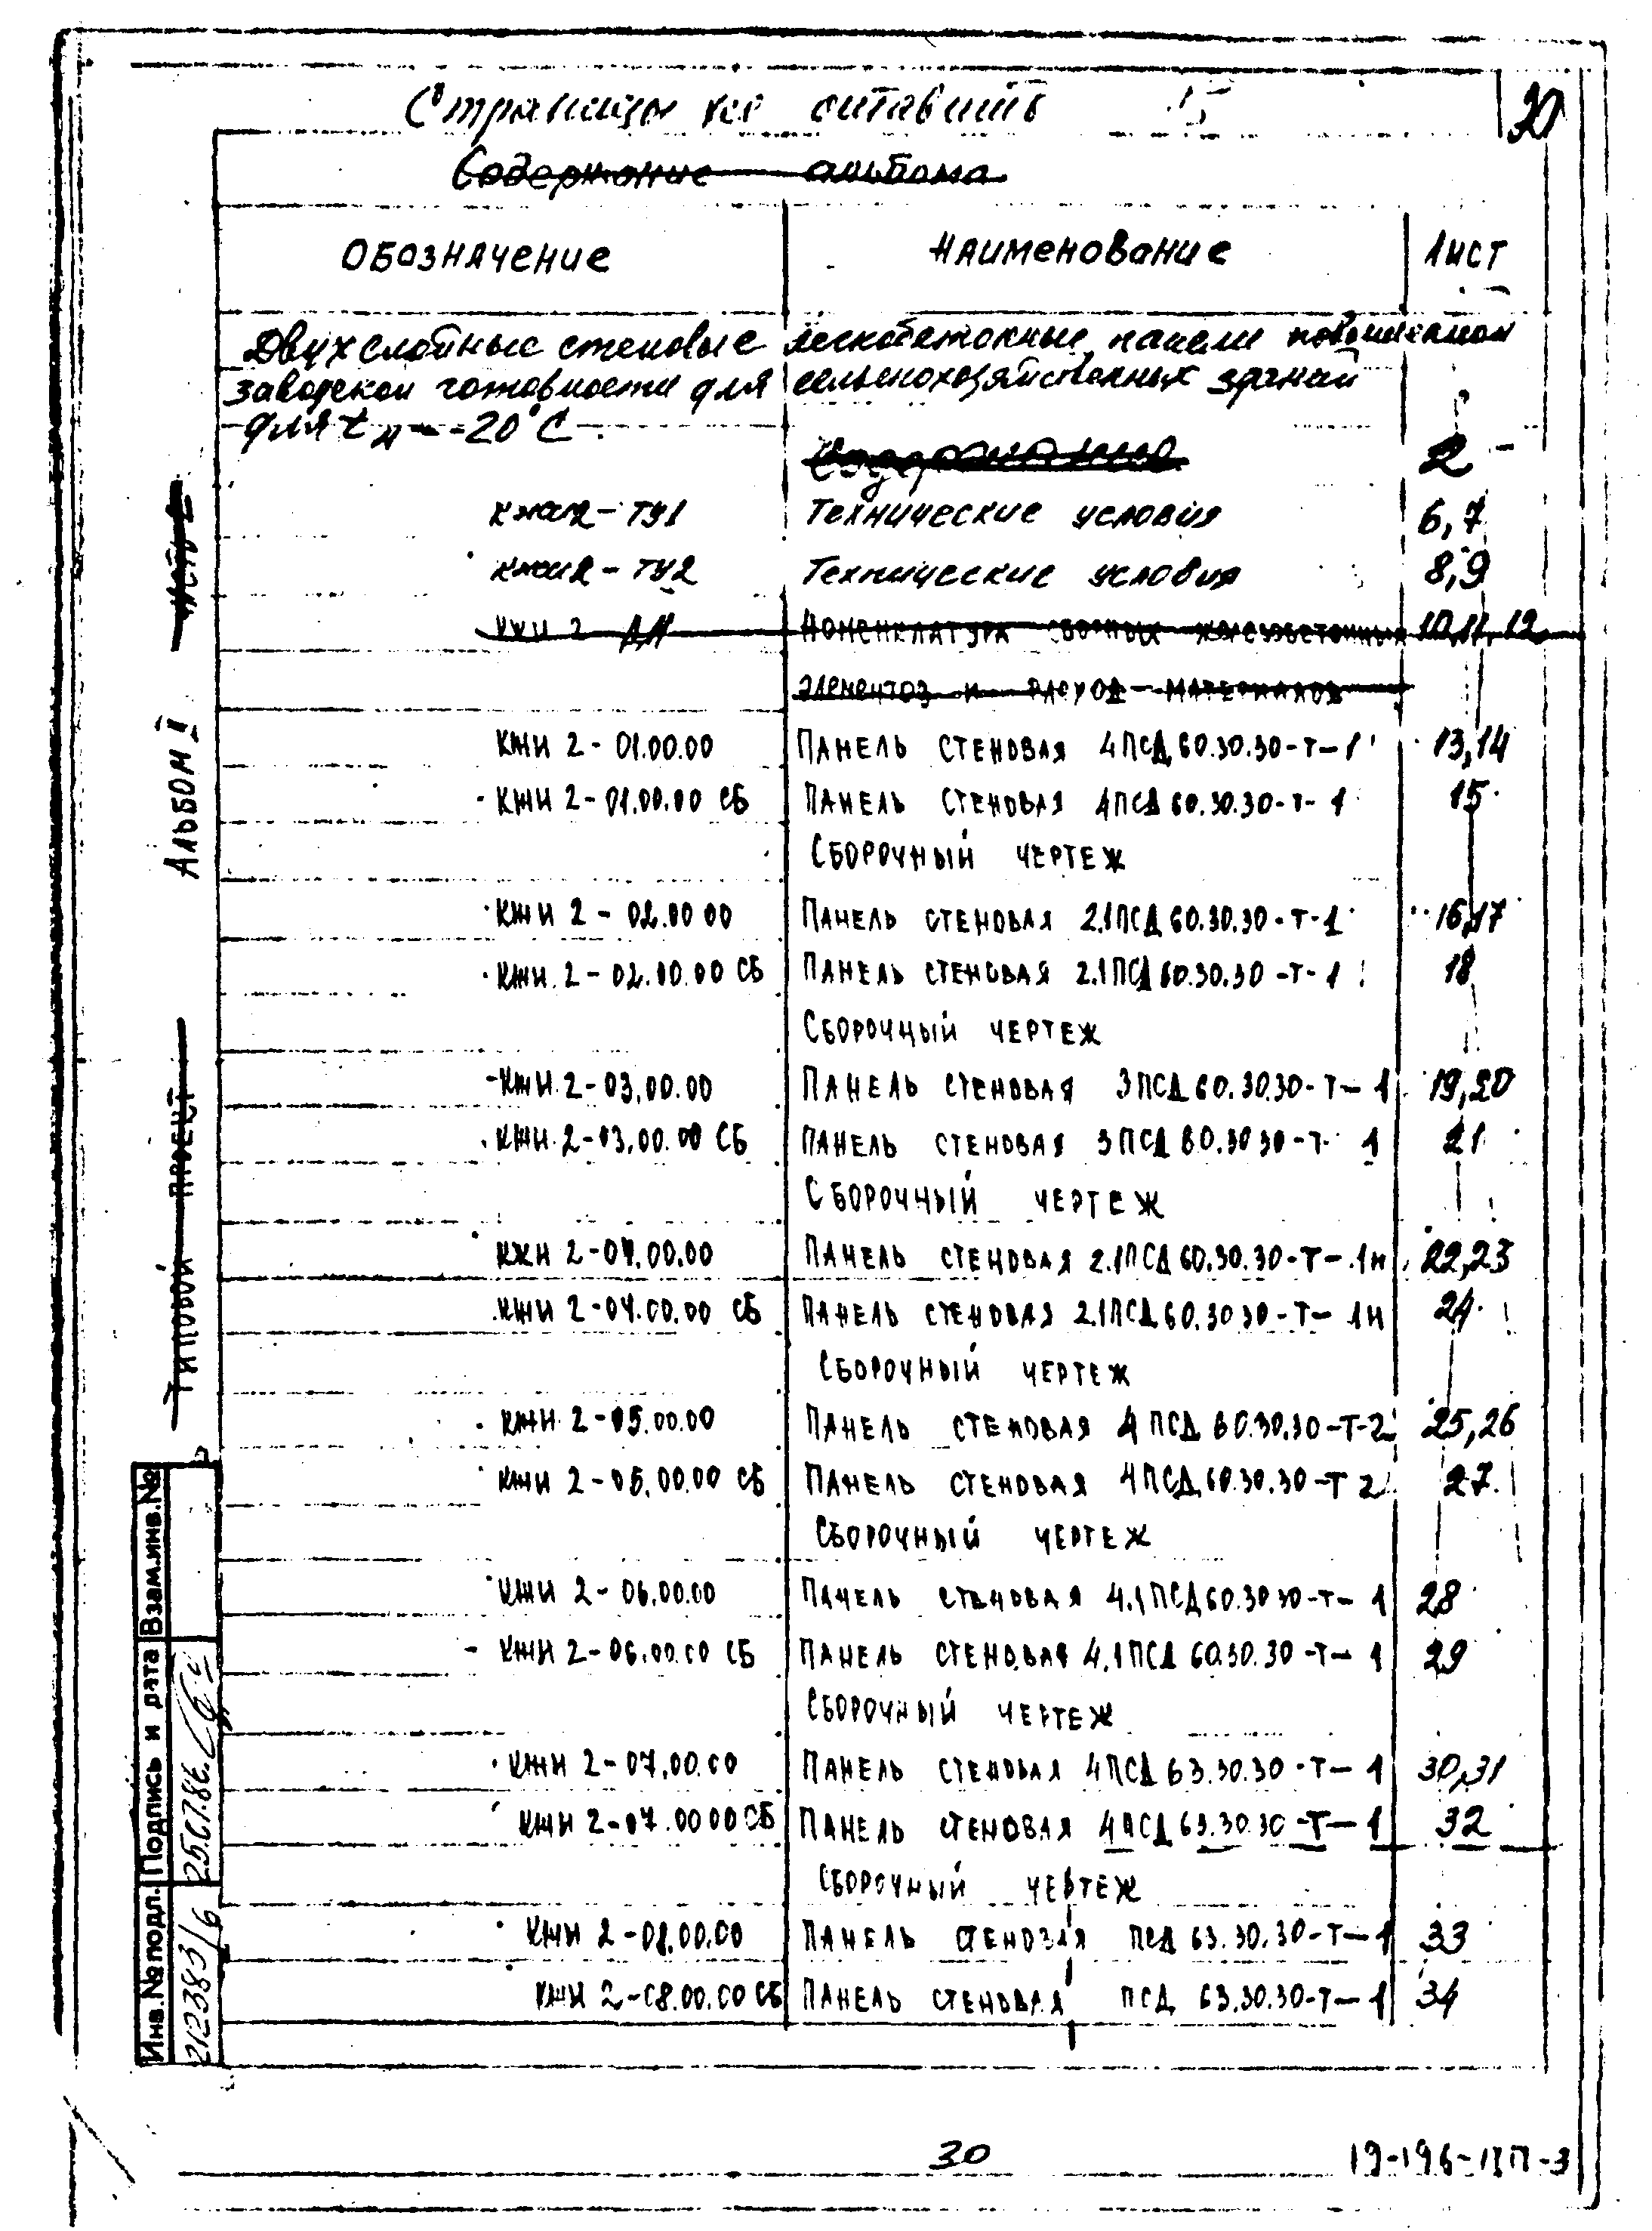 Страницы не ставить
30
Содержание альбома
ОБОЗНАЧЕНИЕ НАИМЕНОВАНИЕ ЛИСТ
Двухслойные стеновые легкобетонные панели повышенной
заводской готовности для сельскохозяйственных зданий
для tн - -20°С
Содержание 2
КЖИ2-ТУ1 Технические условия 6,7
КЖИ2-ТУ2 Технические условия 8,9
КЖИ 2 НОМЕНКЛАТУРА СБОРНЫХ ЖЕЛЕЗОБЕТОННЫХ 10,11,12
ЭЛЕМЕНТОВ И РАСХОД МАТЕРИАЛОВ
КЖИ 2-01.00.00 ПАНЕЛЬ СТЕНОВАЯ 4ПСД 60.30.30-Т-1 13,14
КЖИ 2-01.00.00 СБ ПАНЕЛЬ СТЕНОВАЯ 4ПСД 60.30.30-Т-1 15
СБОРОЧНЫЙ ЧЕРТЕЖ
КЖИ 2-02.00.00 ПАНЕЛЬ СТЕНОВАЯ 2.1ПСД 60.30.30-Т-1 16,17
КЖИ 2-02.00.00 СБ ПАНЕЛЬ СТЕНОВАЯ 2.1ПСД 60.30.30-Т-1 18
СБОРОЧНЫЙ ЧЕРТЕЖ
КЖИ 2-03.00.00 ПАНЕЛЬ СТЕНОВАЯ 3ПСД 60.30.30-Т-1 19,20
КЖИ 2-03.00.00 СБ ПАНЕЛЬ СТЕНОВАЯ 3ПСД 60.30.30-Т-1 21
СБОРОЧНЫЙ ЧЕРТЕЖ
КЖИ 2-04.00.00 ПАНЕЛЬ СТЕНОВАЯ 2.1ПСД 60.30.30-Т-1н 22,23
КЖИ 2-04.00.00 СБ ПАНЕЛЬ СТЕНОВАЯ 2.1ПСД 60.30.30-Т-1н 24
СБОРОЧНЫЙ ЧЕРТЕЖ
КЖИ 2-05.00.00 ПАНЕЛЬ СТЕНОВАЯ 4ПСД 60.30.30-Т-2 25,26
КЖИ 2-05.00.00 СБ ПАНЕЛЬ СТЕНОВАЯ 4ПСД 60.30.30-Т 2 27
СБОРОЧНЫЙ ЧЕРТЕЖ
КЖИ 2-06.00.00 ПАНЕЛЬ СТЕНОВАЯ 4.1ПСД 60.30.30-Т-1 28
КЖИ 2-06.00.00 СБ ПАНЕЛЬ СТЕНОВАЯ 4.1ПСД 60.30.30-Т-1 29
СБОРОЧНЫЙ ЧЕРТЕЖ
КЖИ 2-07.00.00 ПАНЕЛЬ СТЕНОВАЯ 4ПСД 63.30.30-Т-1 30,31
КЖИ 2-07.00.00 СБ ПАНЕЛЬ СТЕНОВАЯ 4ПСД 63.30.30-Т-1 32
СБОРОЧНЫЙ ЧЕРТЕЖ
КЖИ 2-08.00.00 ПАНЕЛЬ СТЕНОВАЯ ПСД 63.30.30-Т-1 33
КЖИ 2-08.00.00 СБ ПАНЕЛЬ СТЕНОВАЯ ПСД 63.30.30-Т-1 34
ТИПОВОЙ ПРОЕКТ АЛЬБОМ I
Инв.№ подл. Подпись и дата Взам.инв.№
212383/6
30